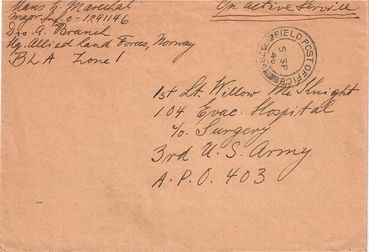 Hans G. Marechal
On Active Service
Major Inf O-1291146
Drs A. Branch
Hq. Allied land Forces, Norway
BLA Zone 1
FIELD POST OFFICE
5 SP
1st Lt. Willow Mc Knight
104 Evac. Hospital
c/o Surgery
3rd U.S. Army
A.P.O. 403